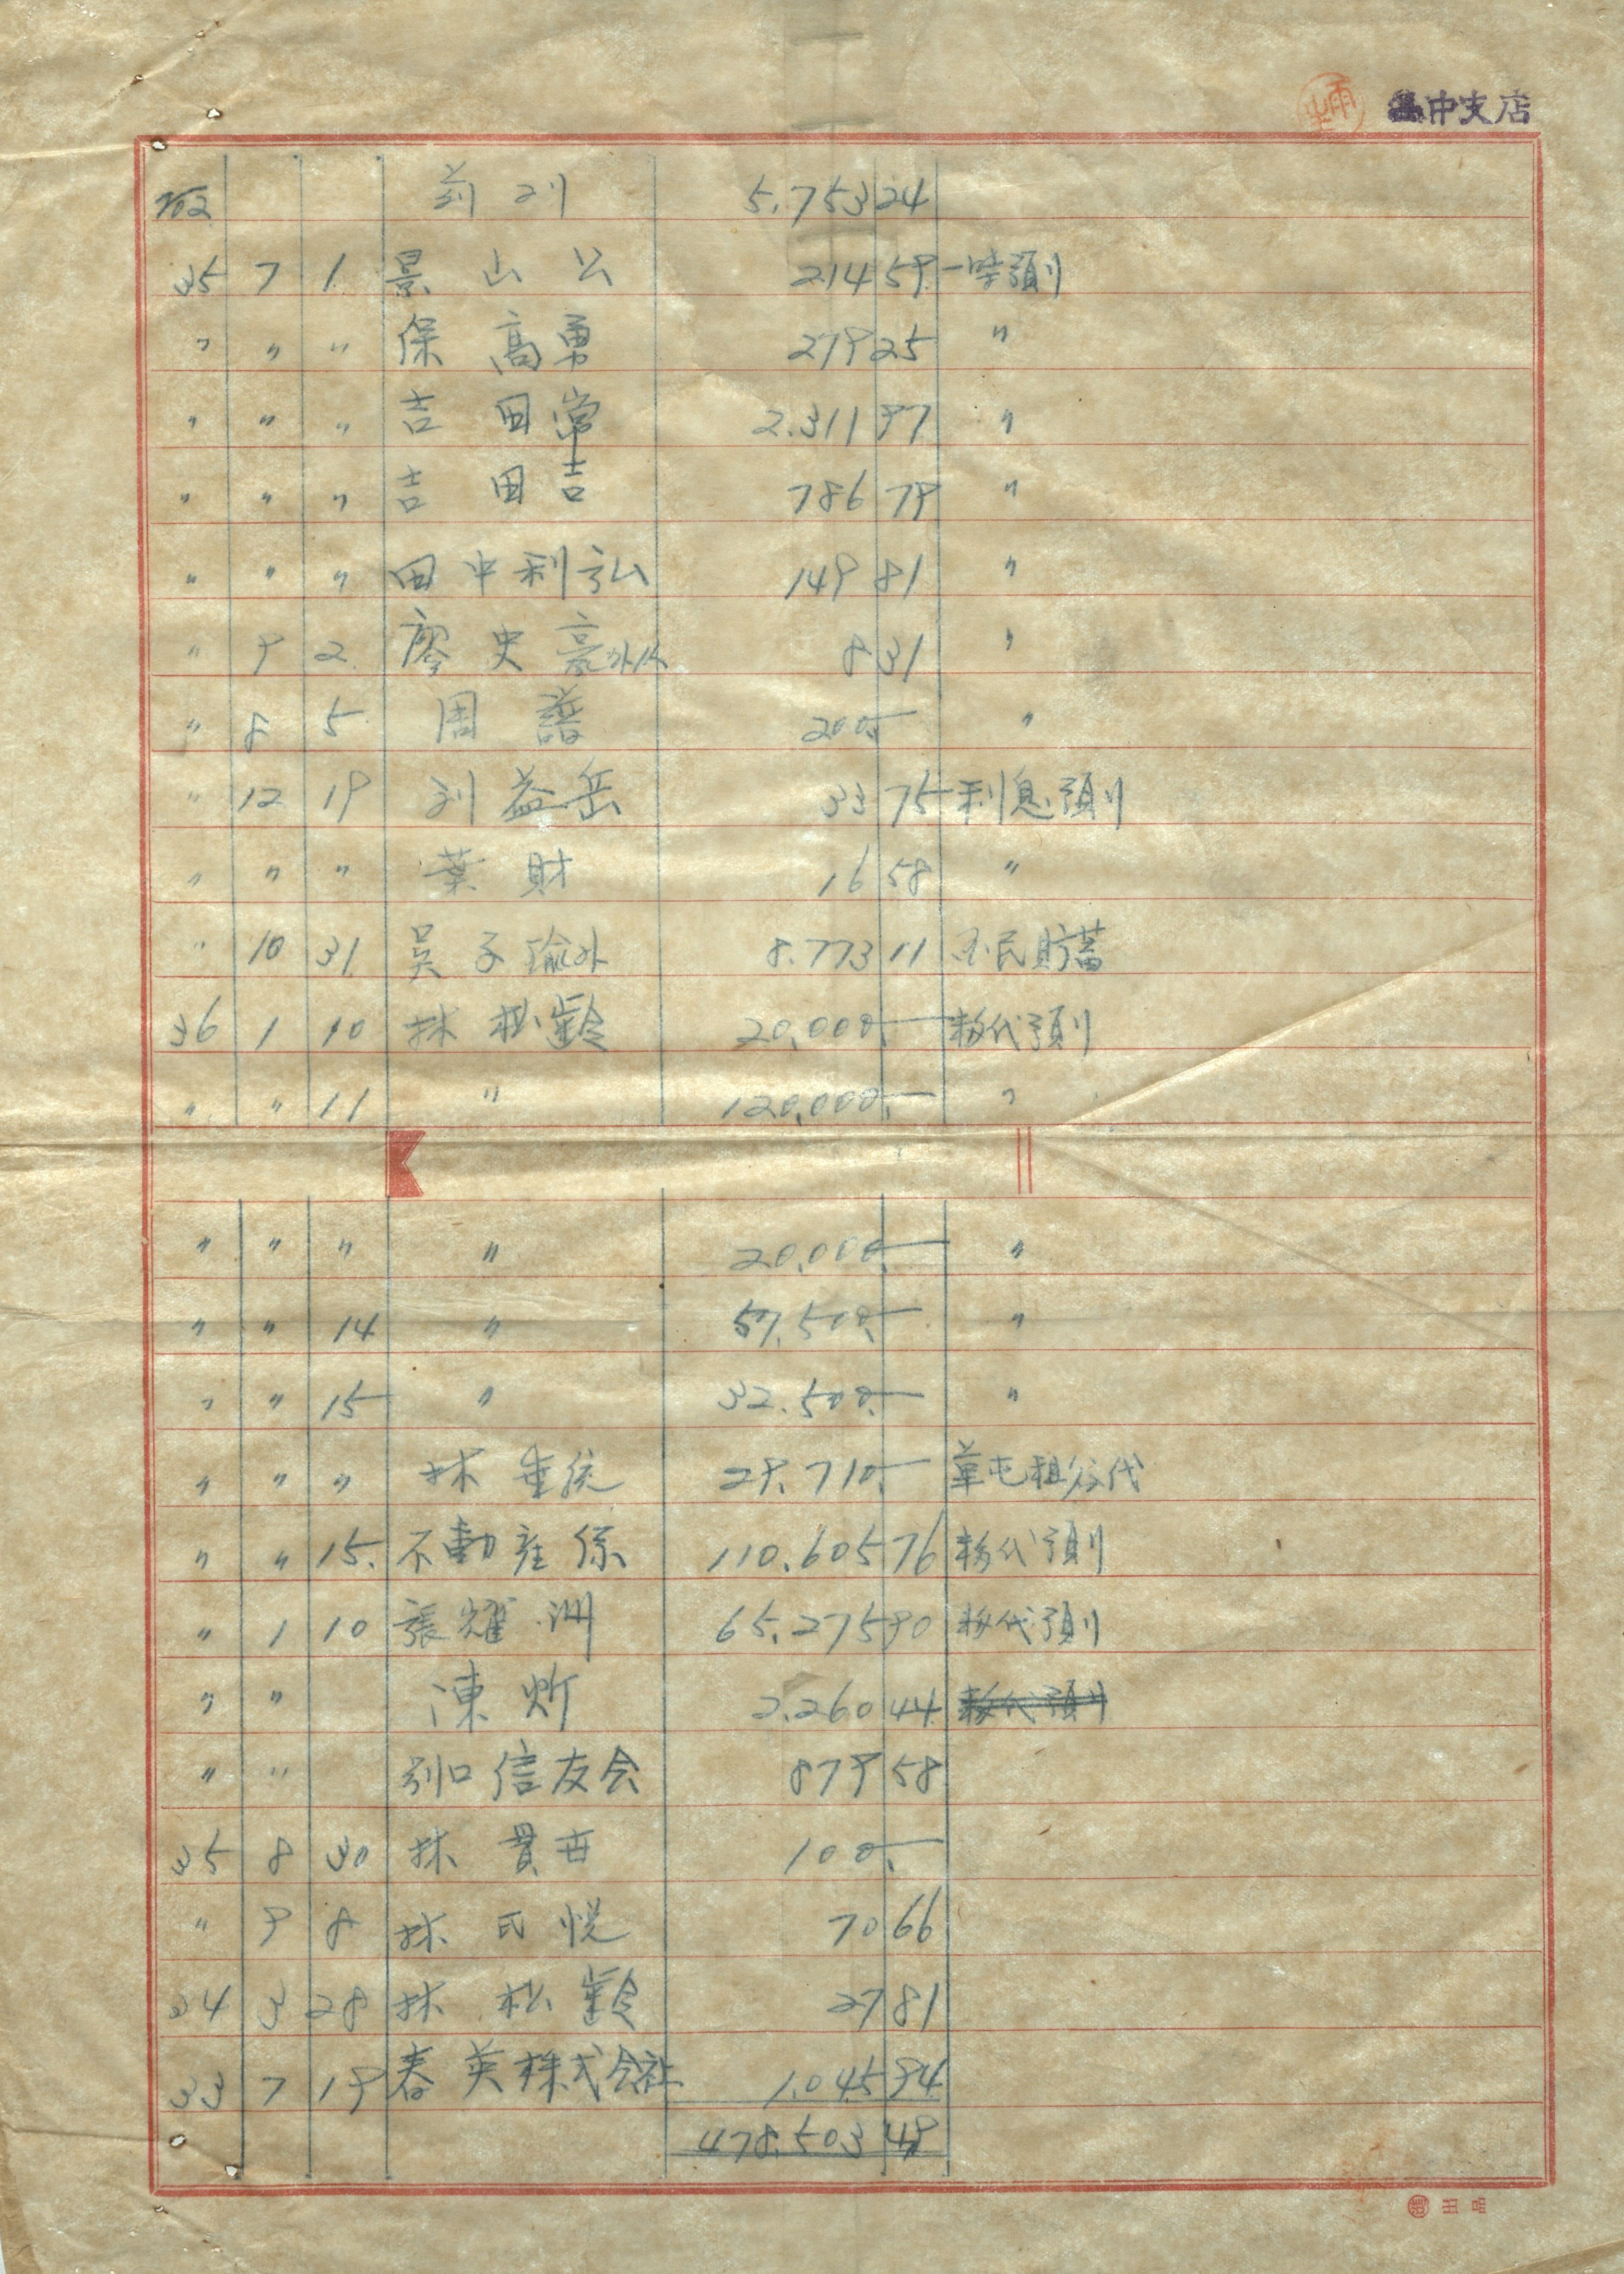 台中支店
No2 前 列 5,753 24
35 7 1 景山公 214 59 一時預リ
〃 〃 〃 保高勇 279 25 〃
〃 〃 〃 吉田常 2.311 97 〃
〃 〃 〃 吉田吉 786 79 〃
〃 〃 〃 田中利弘 149 81 〃
〃 9 2 廖史豪外 8 31 〃
〃 8 5 周 200.— 〃
〃 12 19 劉益岳 33 75 利息預リ
〃 〃 〃 葉財 16 58 〃
〃 10 31 吳子瑜外 8.773 11 国民貯蓄
36 1 10 林松齡 20,000.— 籾代預リ
〃 〃 11 〃 120,000.— 〃
〃 〃 〃 〃 20,000.— 〃
〃 〃 14 〃 57,500.— 〃
〃 〃 15 〃 32.500.— 〃
〃 〃 〃 林垂統 29,710.— 草屯租谷代
〃 〃 15. 不動産係 110,605 76 籾代預リ
〃 1 10 張耀洲 65,275 90 籾代預リ
〃 〃 陳炘 2.260 44 籾代預リ
〃 〃 別口信友会 879 58
35 8 30 林貫世 100.—
〃 9 8 林氏悦 70 66
34 3 28 林松齡 27 81
33 7 19 春英株式会社 1,045 94
478,503 49